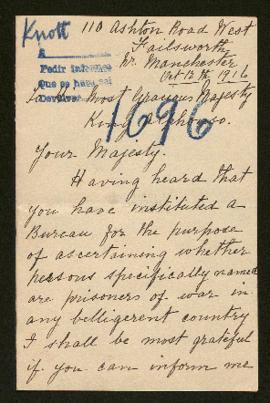 Knott
110 Ashton Road West
Failsworth
Nr. Manchester
Oct 12th, 1916
A
Pedir
Que se haga
Devolver
1696
To His Most Gracious Majesty
King Alphonso.
Your Majesty.
Having heard that
you have instituted a
Bureau for the purpose
of ascertaining whether
persons specifically named
are prisoners of war in
any belligerent country
I shall be most grateful
if you can inform me